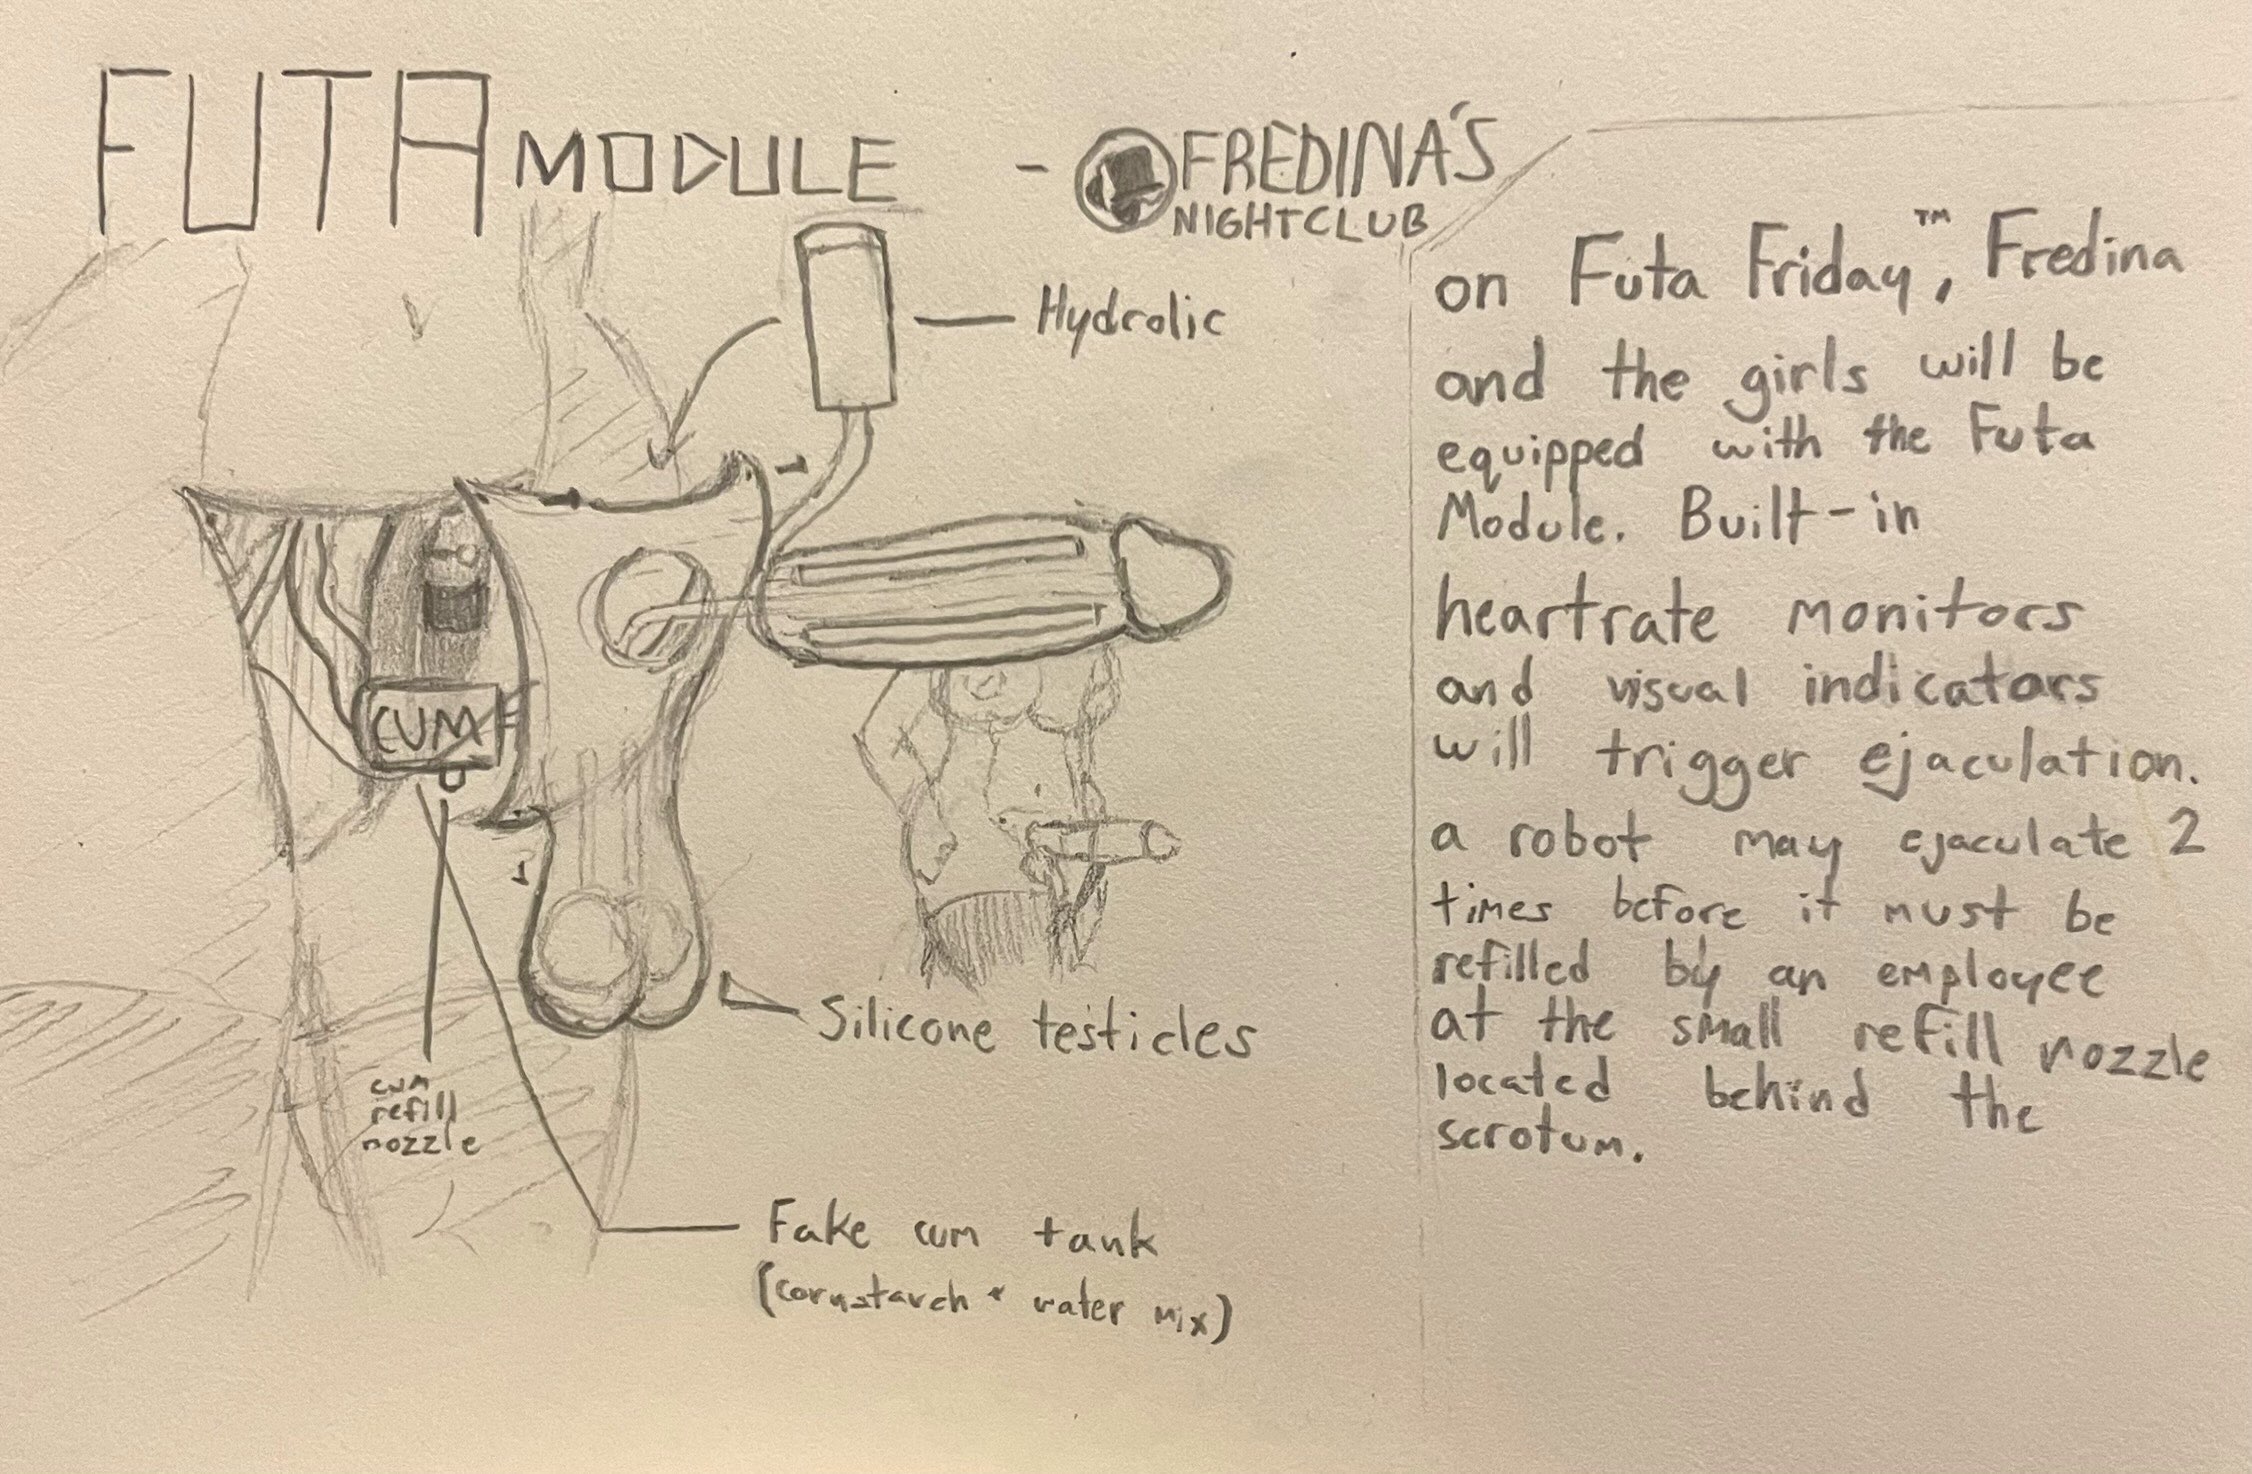 FUTA MODULE - FREDINA'S
NIGHTCLUB
Hydrolic
CUM
Silicone testicles
cum
refill
nozzle
Fake cum tank
(cornstarch + water mix)
on Futa Friday™, Fredina
and the girls will be
equipped with the Futa
Module. Built-in
heartrate monitors
and visual indicators
will trigger ejaculation.
a robot may ejaculate 2
times before it must be
refilled by an employee
at the small refill nozzle
located behind the
scrotum.